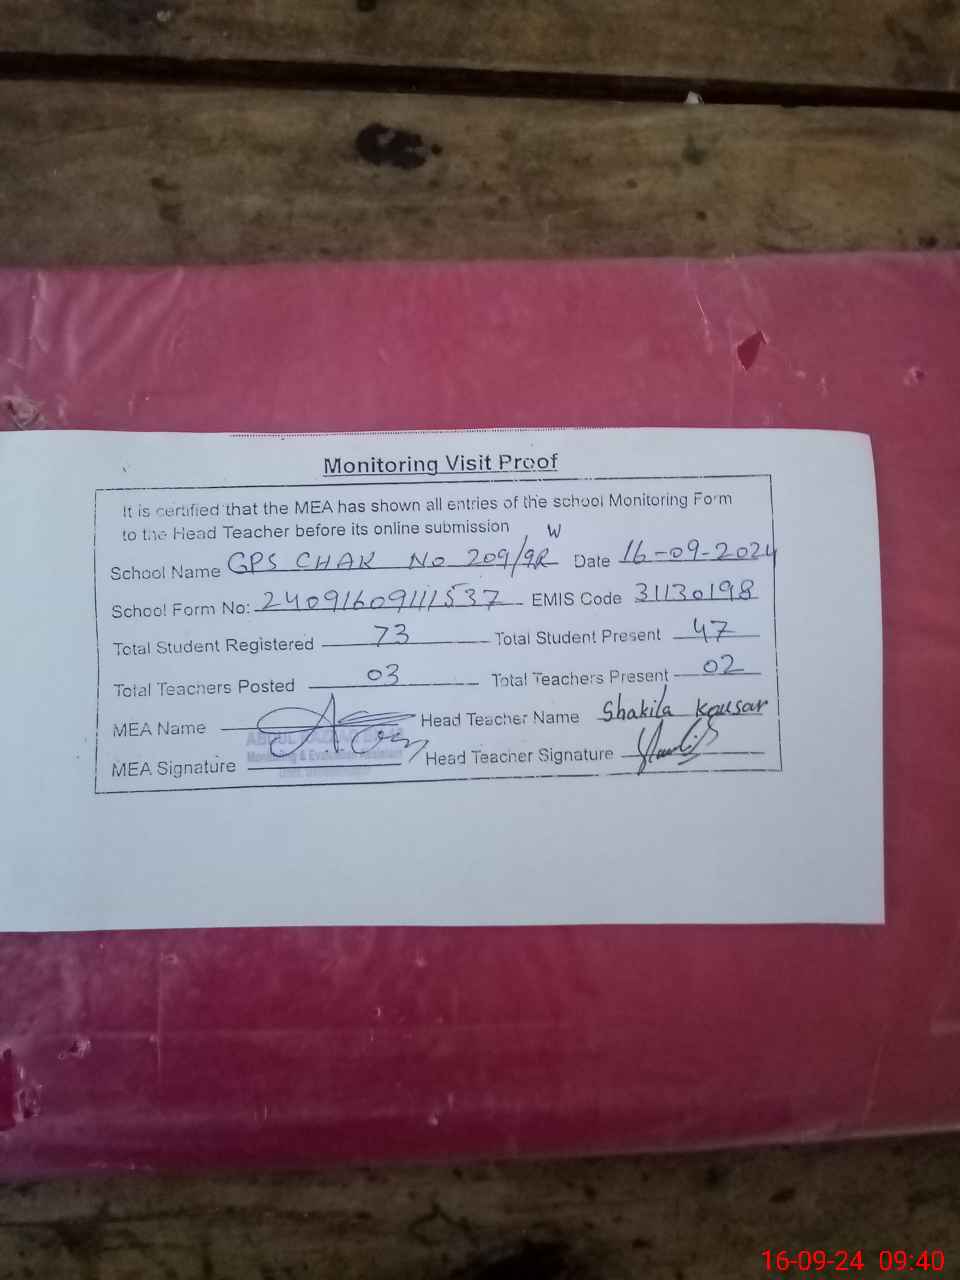 Monitoring Visit Proof
It is certified that the MEA has shown all entries of the school Monitoring Form
to the Head Teacher before its online submission
School Name GPS CHAK No 209/9R W Date 16-09-2024
School Form No: 24091609111537 EMIS Code 31130198
Total Student Registered 73 Total Student Present 47
Total Teachers Posted 03 Total Teachers Present 02
MEA Name Head Teacher Name Shakila Kousar
ABDUL
Monitoring & Evaluation Assistant
MEA Signature Head Teacher Signature
16-09-24 09:40